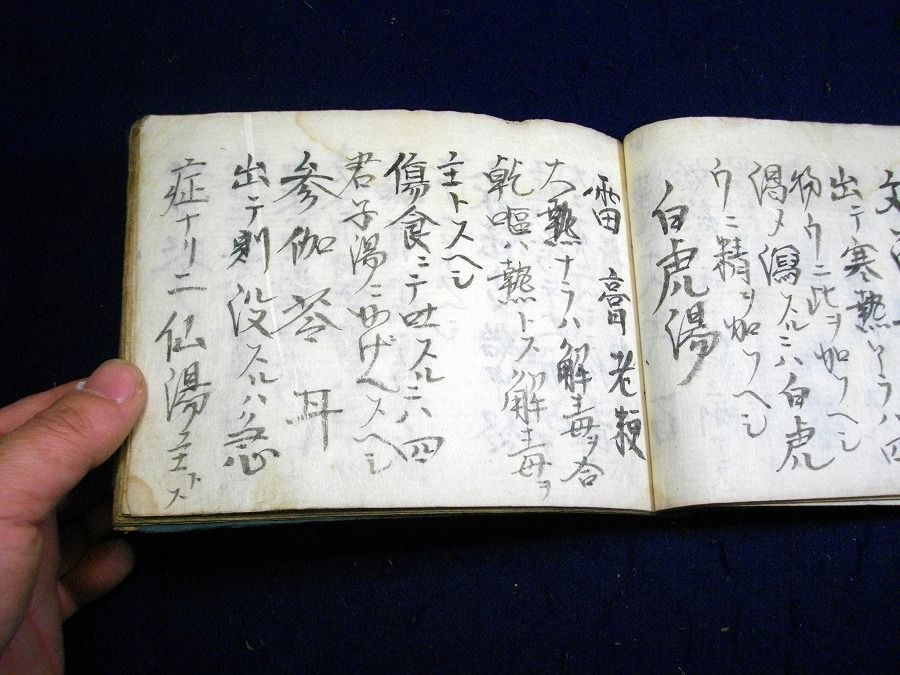 出テ寒熱
物ウニ此ヲ加フヘシ
渇メ瀉スルニハ白虎
ウニ精ヲ加フヘシ
白虎湯
雷 富 老 粳
大熱ナラハ解毒ヲ合
乾嘔ハ熱トス解毒ヲ
主トスヘシ
傷食ニテ吐スルニハ四
君子湯ニ
参 伽 苓 耳
出テ則没スルハ急
症ナリ二仙湯主トス